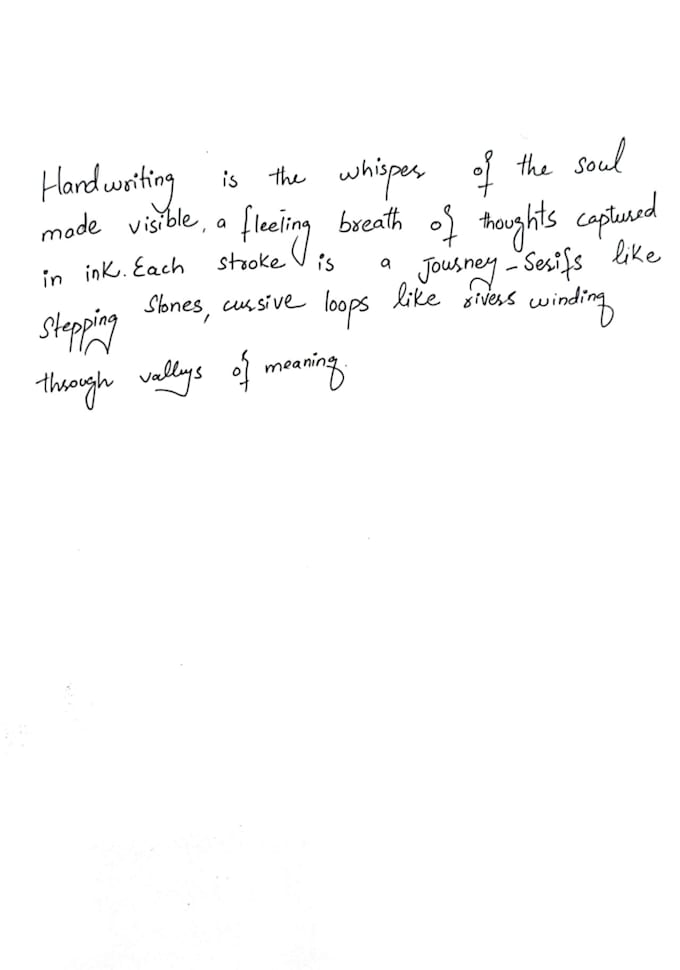 Handwriting is the whisper of the soul
made visible, a fleeting breath of thoughts captured
in ink. Each stroke is a Journey - Serifs like
Stepping Stones, cursive loops like rivers winding
through valleys of meaning.